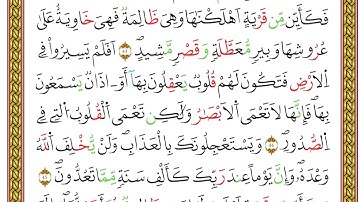 فَكَأَيِّن مِّن قَرْيَةٍ أَهْلَكْنَٰهَا وَهِيَ ظَالِمَةٌ فَهِيَ خَاوِيَةٌ عَلَىٰ
عُرُوشِهَا وَبِيرٍ مُّعَطَّلَةٍ وَقَصْرٍ مَّشِيدٍ ٤٣ اَفَلَمْ يَسِيرُوا۟ فِي
اِ۬لَارْضِ فَتَكُونَ لَهُمْ قُلُوبٌ يَعْقِلُونَ بِهَا أَوَ اٰذَانٌ يَسْمَعُونَ
بِهَا فَإِنَّهَا لَا تَعْمَى اَ۬لَابْصَٰرُ وَلَٰكِن تَعْمَى اَ۬لْقُلُوبُ اُ۬لتِے فِي
اِ۬لصُّدُورِ ٤٤ وَيَسْتَعْجِلُونَكَ بِالْعَذَابِ وَلَنْ يُّخْلِفَ اَ۬للَّهُ
وَعْدَهُۥ وَإِنَّ يَوْماً عِندَ رَبِّكَ كَأَلْفِ سَنَةٍ مِّمَّا تَعُدُّونَ ٤٥